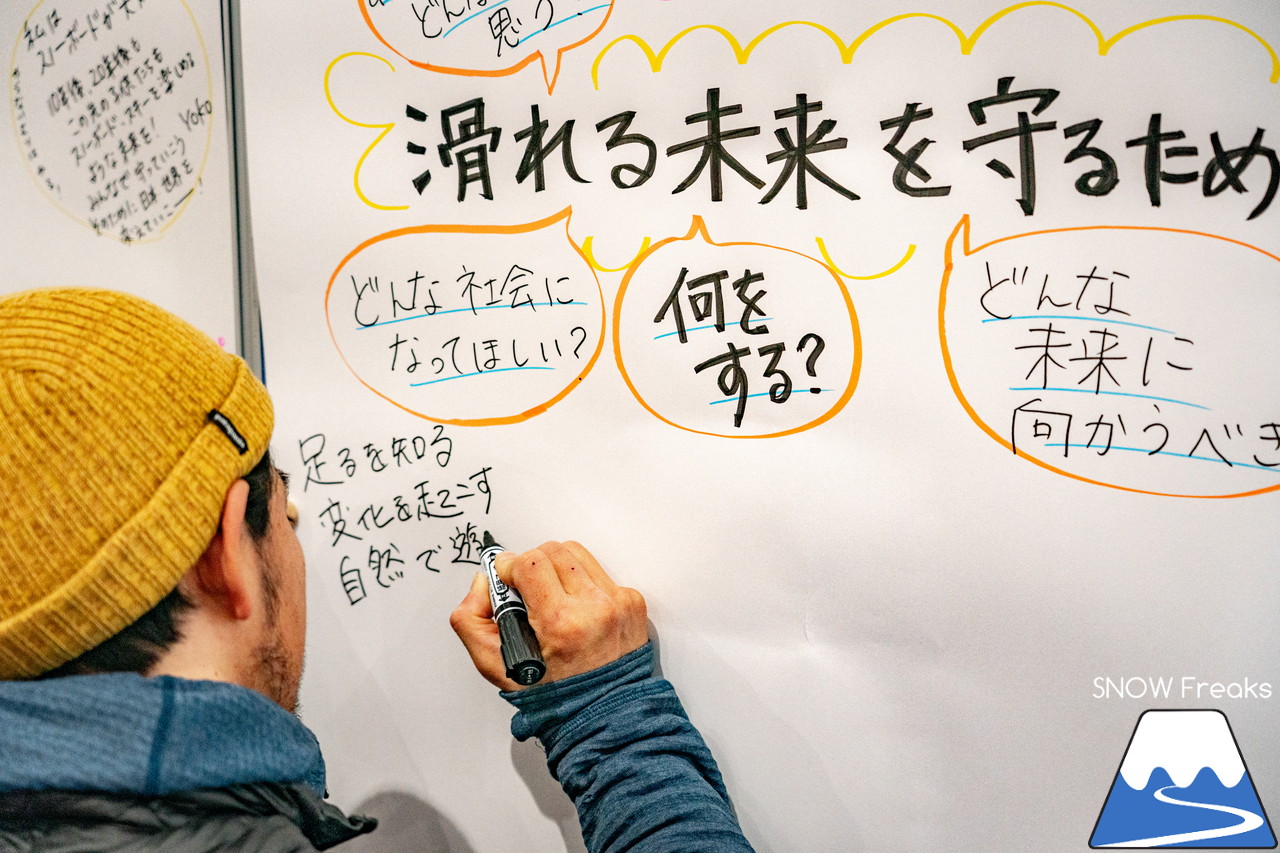 私は
スノーボードが大
10年後、20年後も
この先の子供たちも
スノーボード、スキーを楽しめる
ような未来を!
みんなで守っていこう
そのために日本、世界を
変えていこー!
YOKO
どんな
思う?
滑れる未来を守るため
どんな社会に
なってほしい?
何を
する?
どんな
未来に
向かうべき
足るを知る
変化を起こす
自然で遊
SNOW Freaks